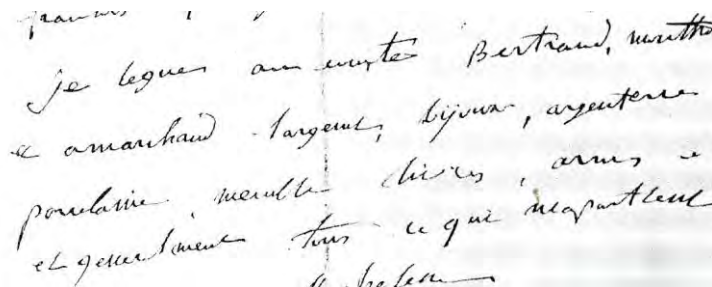 Je legues au comte Bertrand, montho
et a marchand l'argent, bijoux, argenterie
porcelaine, meuble livres, armes e
et generalment tous ce qui mapartient